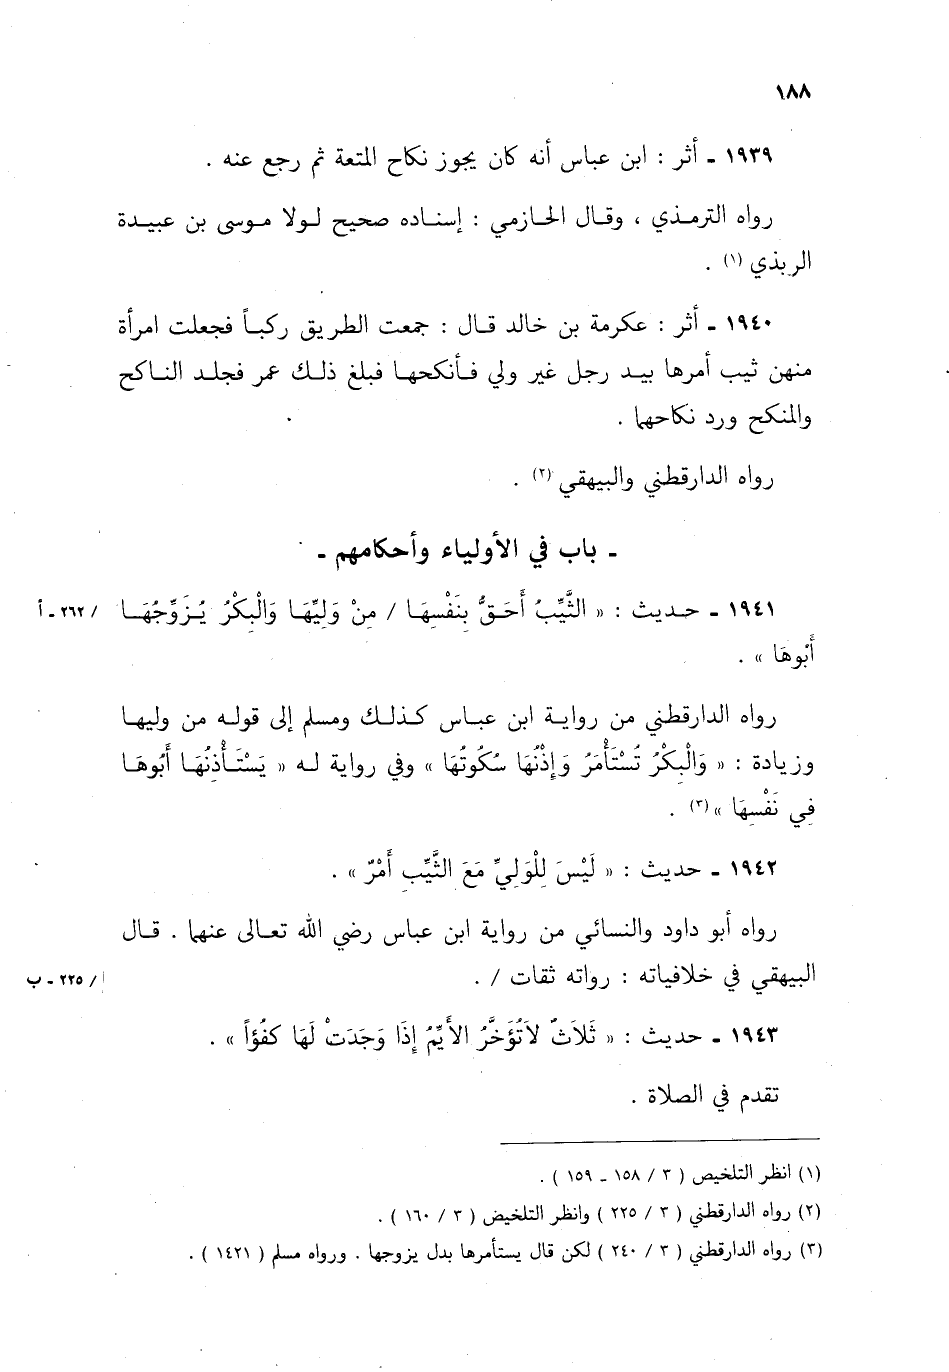 ١٨٨
١٩٣٩ - أثر : ابن عباس أنه كان يجوز نكاح المتعة ثم رجع عنه .
رواه الترمذي ، وقال الحازمي : إسناده صحيح لولا موسى بن عبيدة
الربذي (١) .
١٩٤٠ - أثر : عكرمة بن خالد قال : جمعت الطريق ركباً فجعلت امرأة
منهن ثيب أمرها بيد رجل غير ولي فأنكحها فبلغ ذلك عمر فجلد الناكح
والمنكح ورد نكاحها .
رواه الدارقطني والبيهقي (٢) .
- باب في الأولياء وأحكامهم -
١٩٤١ - حديث : « الثَّيِّبُ أَحَقُّ بِنَفْسِهَا / مِنْ وَلِيِّهَا وَالْبِكْرُ يُزَوِّجُهَا / ٢٦٢ - أ
أَبُوهَا » .
رواه الدارقطني من رواية ابن عباس كذلك ومسلم إلى قوله من وليها
وزيادة : « وَالْبِكْرُ تُسْتَأْمَرُ وَإِذْنُهَا سُكُوتُهَا » وفي رواية له « يَسْتَأْذِنُهَا أَبُوهَا
فِي نَفْسِهَا » (٣) .
١٩٤٢ - حديث : « لَيْسَ لِلْوَلِيِّ مَعَ الثَّيِّبِ أَمْرٌ » .
رواه أبو داود والنسائي من رواية ابن عباس رضي الله تعالى عنهما . قال
البيهقي في خلافياته : رواته ثقات / . أ / ٢٢٥ - ب
١٩٤٣ - حديث : « ثَلَاثٌ لاَتُؤَخَّرُ الأَيِّمُ إِذَا وَجَدَتْ لَهَا كفُؤاً » .
تقدم في الصلاة .
(١) انظر التلخيص ( ٣ / ١٥٨ - ١٥٩ ) .
(٢) رواه الدارقطني ( ٣ / ٢٢٥ ) وانظر التلخيص ( ٣ / ١٦٠ ) .
(٣) رواه الدارقطني ( ٣ / ٢٤٠ ) لكن قال يستأمرها بدل يزوجها . ورواه مسلم ( ١٤٢١ ) .